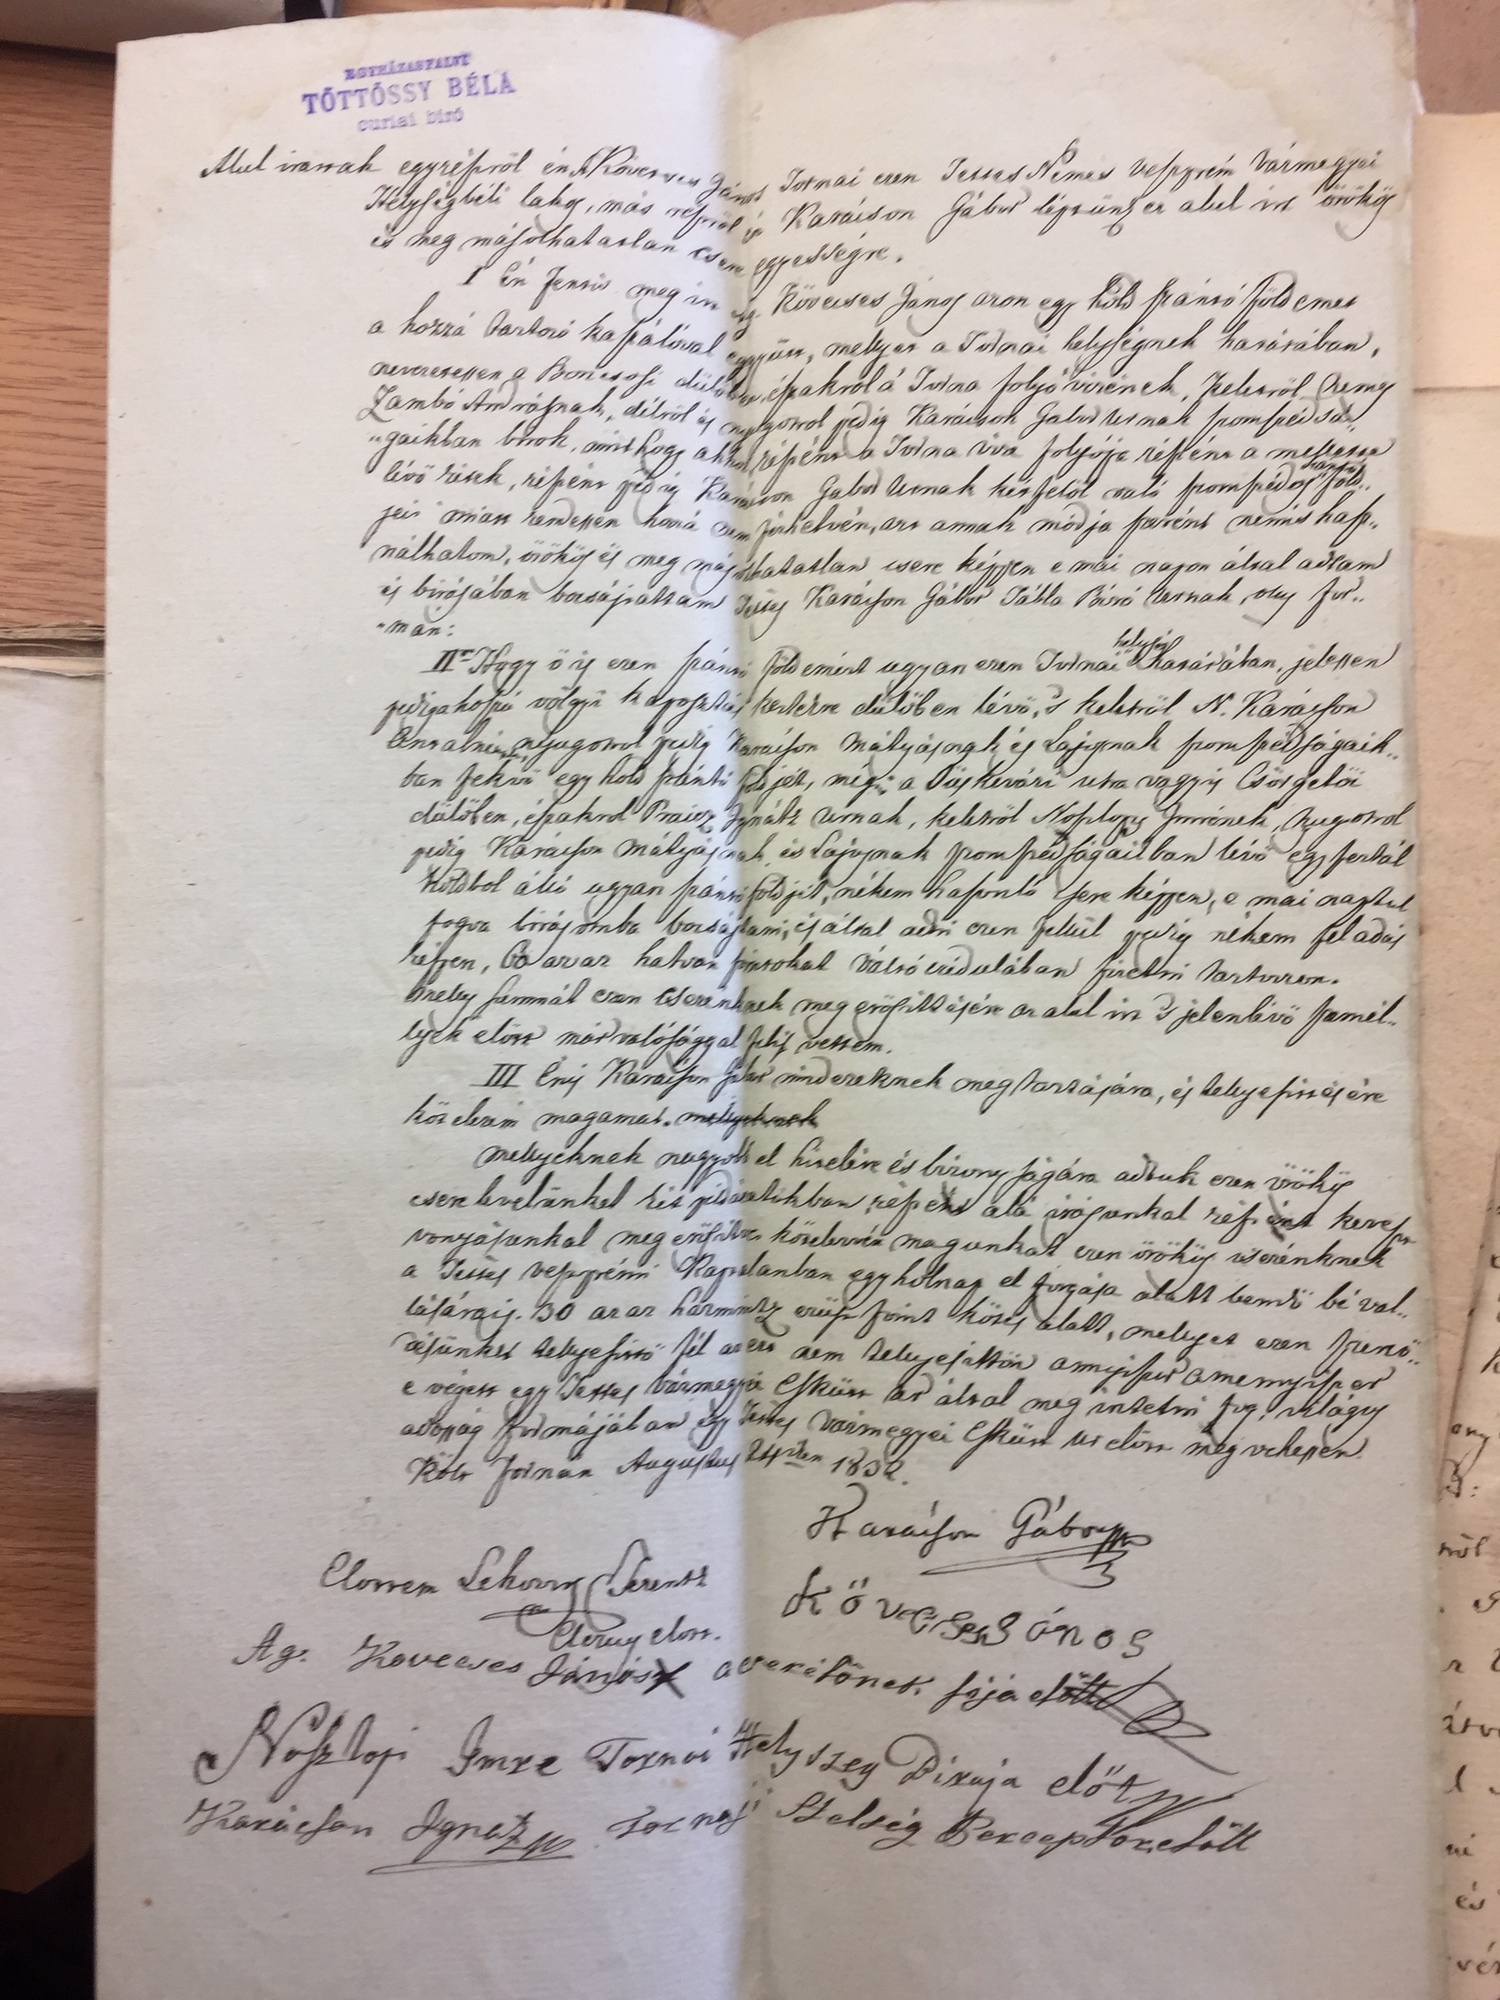 EGYHÁZASFALVI
TÖTTÖSSY BÉLA
curiai biró
Alul irattak egyrészröl én A. Kövecses János Tornai ezen Tettes Nemes veszprém vármegyei
Helységbéli lakos, más részröl és Karácson Gábor léptünk ez alul irt örökös
és meg másolhatatlan csere egyességre.
I Én fentis meg irt ifj. Kövecses János azon egy hold szántó földemet
a hozzá tartozó kaszálóval együtt, melyet a Tornai helységnek határában,
nevezetessen a Boncsosi dülöben, északrol a Torna folyó vizének, Keletröl Öreg
Zambó Andrásnak, délröl és nyugotrol pedig Karácson Gabor Urnak szomszédsá„
„gaikban birok, mint hogy ahhoz részént a Torna viz folyója részént a mellette
lévö rétek, részént pedig Karácson Gabor Urnak kétfelöl való szomszédos szántó föld„
jei miatt rendessen hozá nem férhetvén, azt annak módja szerént nemis hasz„
nálhatom, örökös és meg másolhatatlan csere képpen e mai napon által adtam
és birásában bocsájtattam Tettes Karácson Gábor Tábla Biró Urnak, oly for„
„mán:
IIor Hogy ö is ezen szántó földemért ugyan ezen Tornai helység határában, jelessen
pedig a hoszú völgyi kaposztás kertekre dülöben lévö, 's keletröl N. Karácson
Antalné, nyugotrol pedig Karácson Mátyásnak és Lajosnak szomszédságaik„
ban fekvö egy hold szántó földjét, még is a Váskevári utra vagyis Csörgetöi
dülöben, északrol Praicz Ignátz Urnak, keletröl Noszlopy Imrének, Nyugotrol
pedig Karácson Mátyásnak és Lajosnak szomszédságaikban lévö egy fertál
holdbol álló ugyan szántó földjét, nékem hasonló csere képpen, e mai naptul
fogva birásomba bocsájtani, és által adni ezen felül pedig nékem fel adás
képpen, 60 azaz hatvan forintokat váltó czédulában fizetni tartozzon.
Mely summát ezen Cserénknek meg erösittésére az alul irt 's jelenlévö személ„
lyek elött már valósággal felis vettem.
III Énis Karácson Gábor mindezeknek megtartására, és tellyesittésére
kötelezem magamat. mellyeknek
Mellyeknek nagyobb el hitelére és bizonyságára adtuk ezen örökös
csere levelünket két példázatokban, részént alá irásunkal részént kereszt
vonyásunkal meg erösitve kötelezvén magunkat ezen örökös cserénknek
a Tettes veszprémi Kaptalanban egy holnap el forgása alatt lendö bé val„
lásárais. 30 azaz harmintz ezüst forint kötés alatt, melyet ezen szerzö„
désünket tellyesittö fél azon nem tellyesittön annyiszor amennyiszer
e végett egy Tettes Vármegyei Esküttt Ur által meg intetni fog, világos
adósság formájában egy Tettes Vármegyei Eskütt Ur elött meg vehessen.
Költ Tornán Augustus 24ikén 1832.
Karácson Gábor
Elottem Lehorzy Ferentz
Kövecses János
Ag. Kovecses János X a verésönek fija elött
Noszlopi Imre Tornai Helyszég Biraja elött
Karácson Ignatz Tornai Helség Perceptora elött